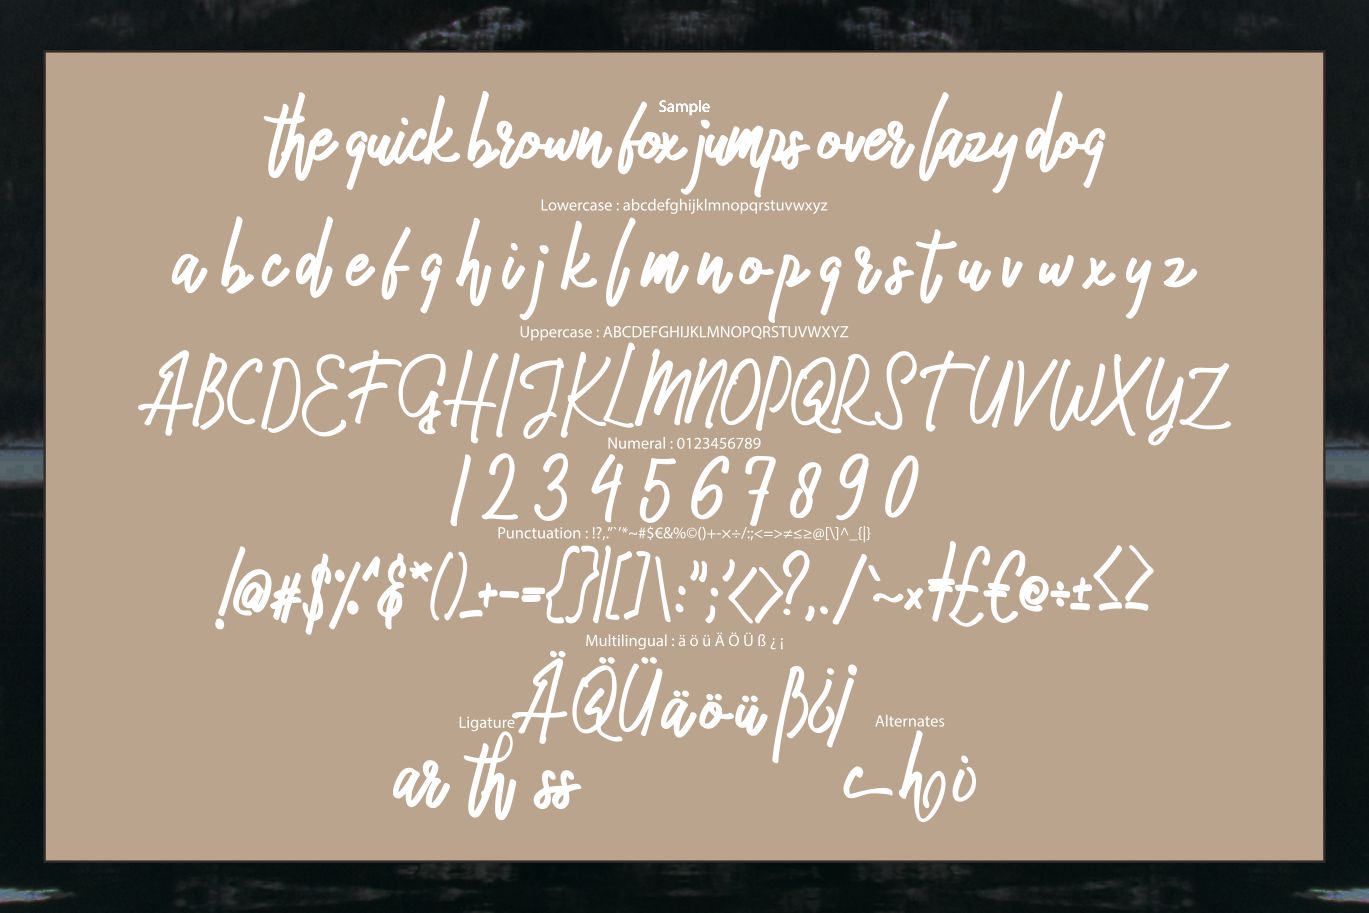 Sample
the quick brown fox jumps over lazy dog
Lowercase : abcdefghijklmnopqrstuvwxyz
a b c d e f g h i j k l m n o p q r s t u v w x y z
Uppercase : ABCDEFGHIJKLMNOPQRSTUVWXYZ
ABCDEFGHIJKLMNOPQRSTUVWXYZ
Numeral : 0123456789
1 2 3 4 5 6 7 8 9 0
Punctuation : !?,.”`’*~#$€&%©()+-×÷/:;<=>≠≤≥@[\]^_{|}
!@#$%^&*()_+-={}|[]\:”;’<>?,./`~×≠£€©÷±≤≥
Multilingual : ä ö ü Ä Ö Ü ß ¿ ¡
ÄÖÜäöüß¿¡
Ligature
ar th ss
Alternates
c h i